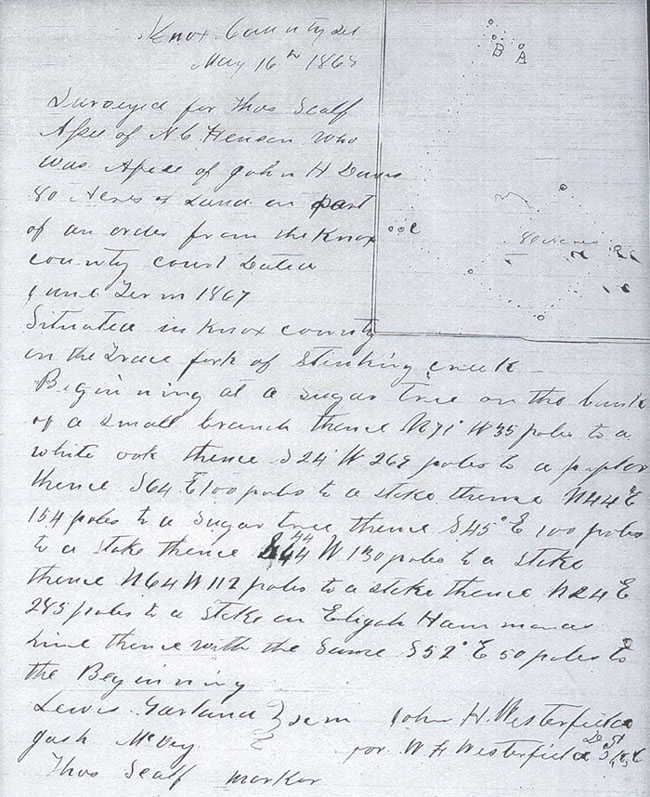 Knox County Sct
May 16th 1868
B A
Surveyed for Thos Scalf
Asee of N C Henson who
was Asee of John H Davis
80 Acres of Land on part
of an order from the Knox
county court Dated
June Term 1867
C
80 acres
Situated in Knox county
on the Trace fork of Stinking creek
Beginning at a sugar tree on the bank
of a small branch thence N71° W35 poles to a
white oak thence S24 W 269 poles to a poplar
thence S64 E100 poles to a stake thence N44 E
154 poles to a Sugar tree thence S45° E 100 poles
to a stake thence 44 W 130 poles to a stake
thence N64 W 112 poles to a stake thence N24 E
285 poles to a stake on Eligah Hammonds
line thence with the Same S52° E 50 poles to
the Beginning
Lewis Garland } John H. Westerfield
Jash McVey } for W H Westerfield
Thos Scalf marker